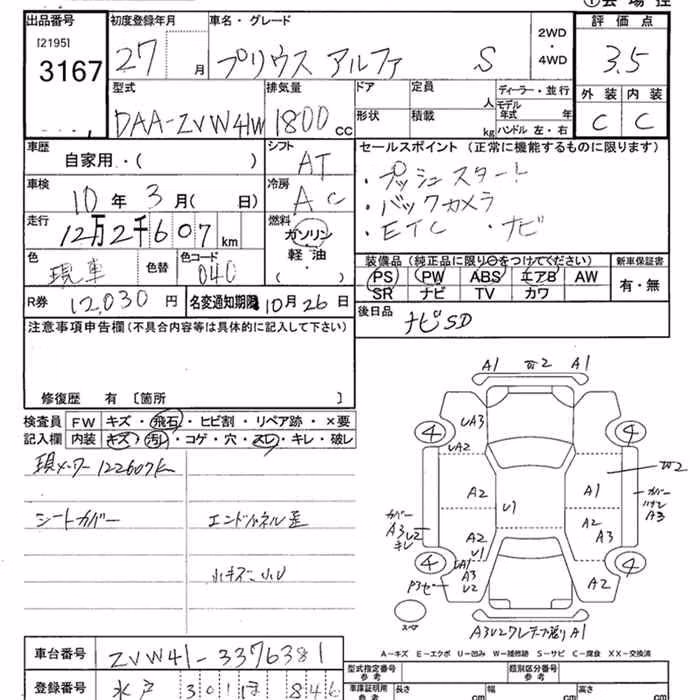 出品番号 初度登録年月 車名・グレード 2WD ・ 4WD 評価点
[2195] 3167
27 月 プリウス アルファ S 3.5
型式 排気量 ドア 定員 人 ディーラー・並行
DAA-ZVW41W 1800 cc 形状 積載 kg モデル年式 年 ハンドル 左・右
外装 内装
C C
車歴 自家用・( ) シフト AT
セールスポイント (正常に機能するものに限ります)
・プッシュスタート
・バックカメラ
・ETC ・ナビ
車検 10年 3月( 日) 冷房 AC
走行 12万2千607 km 燃料 ガソリン 軽油 ( )
色 現車 色替 色コード 040
装備品 (純正品に限り○をつけてください) 新車保証書
PS PW ABS エアB AW 有・無
SR ナビ TV カワ
R券 12,030 円 名変通知期限 10月26日
後日品 ナビSD
注意事項申告欄 (不具合内容等は具体的に記入して下さい)
修復歴 有 [箇所 ]
検査員 FW キズ・飛石・ヒビ割・リペア跡・×要
記入欄 内装 キズ・汚レ・コゲ・穴・スレ・キレ・破レ
現メーター 122607K
シートカバー エンドパネル歪
小キズ、小U
A1 W2 A1
UA3
4 4
UA2
W2
A2 U1 A1
カバー A3 U2 キレ
カバー ハガレ A3
A2 U1
A2 A3
4 4
UA1 A3 U2
A2
スペア
A1
A-キズ E-エクボ U-凹み W-補修跡 S-サビ C-腐食 XX-交換済
車台番号 ZVW41-3376381
登録番号 水戸 301 ほ 846
型式指定番号 参考 類別区分番号 参考
車庫証明用 参考 長さ cm 幅 cm 高さ cm